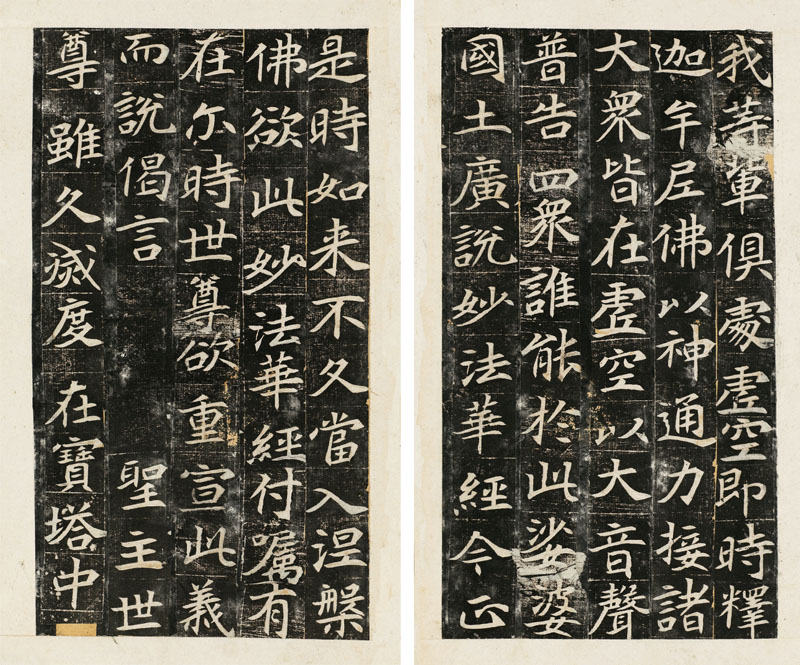 我等輩俱處虛空即時釋
迦牟尼佛以神通力接諸
大衆皆在虛空以大音聲
普告四衆誰能於此娑婆
國土廣說妙法華經今正
是時如来不久當入涅槃
佛欲此妙法華經付囑有
在尒時世尊欲重宣此義
而說偈言 聖主世
尊雖久滅度在寶塔中